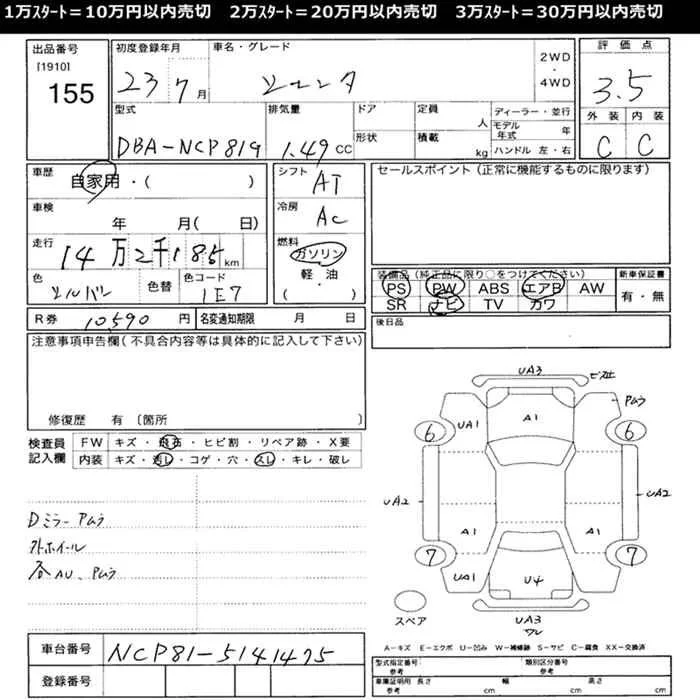 1万ｽﾀｰﾄ＝10万円以内売切　2万ｽﾀｰﾄ＝20万円以内売切　3万ｽﾀｰﾄ＝30万円以内売切
出品番号
[1910]
155
初度登録年月
23 7月
車名・グレード
シエンタ
2WD
・
4WD
評価点
3.5
外装 内装
C C
型式
DBA-NCP81G
排気量
1.49 CC
ドア
形状
定員
人
積載
kg
ディーラー・並行
モデル年式 年
ハンドル 左・右
車歴
自家用・( )
車検
年 月( 日)
走行
14万2千185km
色
シルバー
色替
色コード
1E7
シフト
AT
冷房
AC
燃料
ガソリン
軽・油
( )
セールスポイント（正常に機能するものに限ります）
装備品（純正品に限り○をつけてください）
PS PW ABS エアB AW
SR ナビ TV カワ
新車保証書
有・無
R券 10,590 円
名変通知期限 月 日
後日品
注意事項申告欄（不具合内容等は具体的に記入して下さい）
修復歴 有 〔箇所 〕
検査員
記入欄
FW キズ・飛石・ヒビ割・リペア跡・X要
内装 キズ・汚レ・コゲ・穴・スレ・キレ・破レ
Dミラー Aムラ
外ホイール
各AU、Aムラ
UA3
UA1
A1
6
6
UA2
UA2
A1
A1
7
7
UA1
U4
UA3
ワレ
スペア
A－キズ E－エクボ U－凹み W－補修跡 S－サビ C－腐食 XX－交換済
車台番号
NCP81-5141475
登録番号
型式指定番号
参考
類別区分番号
参考
車庫証明用
参考
長さ cm
幅 cm
高さ cm